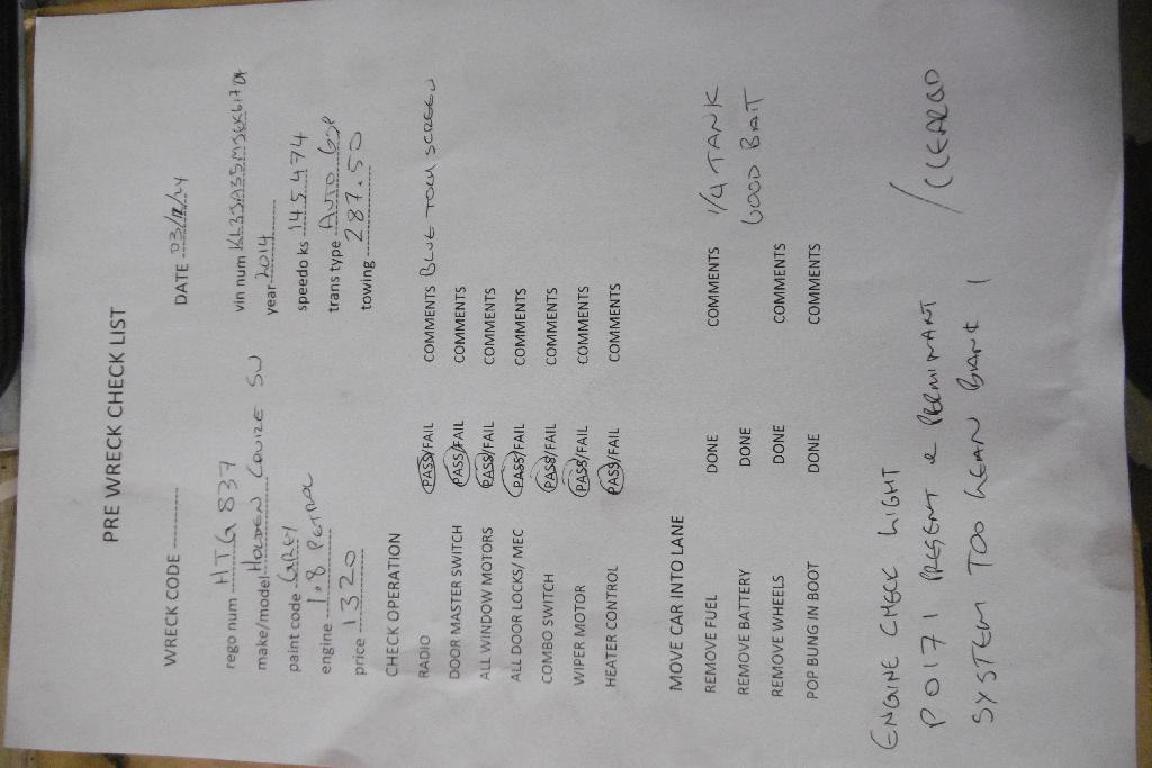 PRE WRECK CHECK LIST
WRECK CODE ----------- DATE 03/12/24
rego num HTG 837 vin num
make/model HOLDEN CRUZE SW year 2014
paint code GREY speedo ks 145474
engine 1.8 PETROL trans type AUTO 6SP
price 1320 towing 287.50
CHECK OPERATION
RADIO PASS/FAIL COMMENTS BLUE TOCH SCREEN
DOOR MASTER SWITCH PASS/FAIL COMMENTS
ALL WINDOW MOTORS PASS/FAIL COMMENTS
ALL DOOR LOCKS/ MEC PASS/FAIL COMMENTS
COMBO SWITCH PASS/FAIL COMMENTS
WIPER MOTOR PASS/FAIL COMMENTS
HEATER CONTROL PASS/FAIL COMMENTS
MOVE CAR INTO LANE
REMOVE FUEL DONE COMMENTS 1/4 TANK
REMOVE BATTERY DONE GOOD BATT
REMOVE WHEELS DONE COMMENTS
POP BUNG IN BOOT DONE COMMENTS
ENGINE CHECK LIGHT
P0171 PRESENT & PERMINANT / CLEARED
SYSTEM TOO LEAN BANK 1